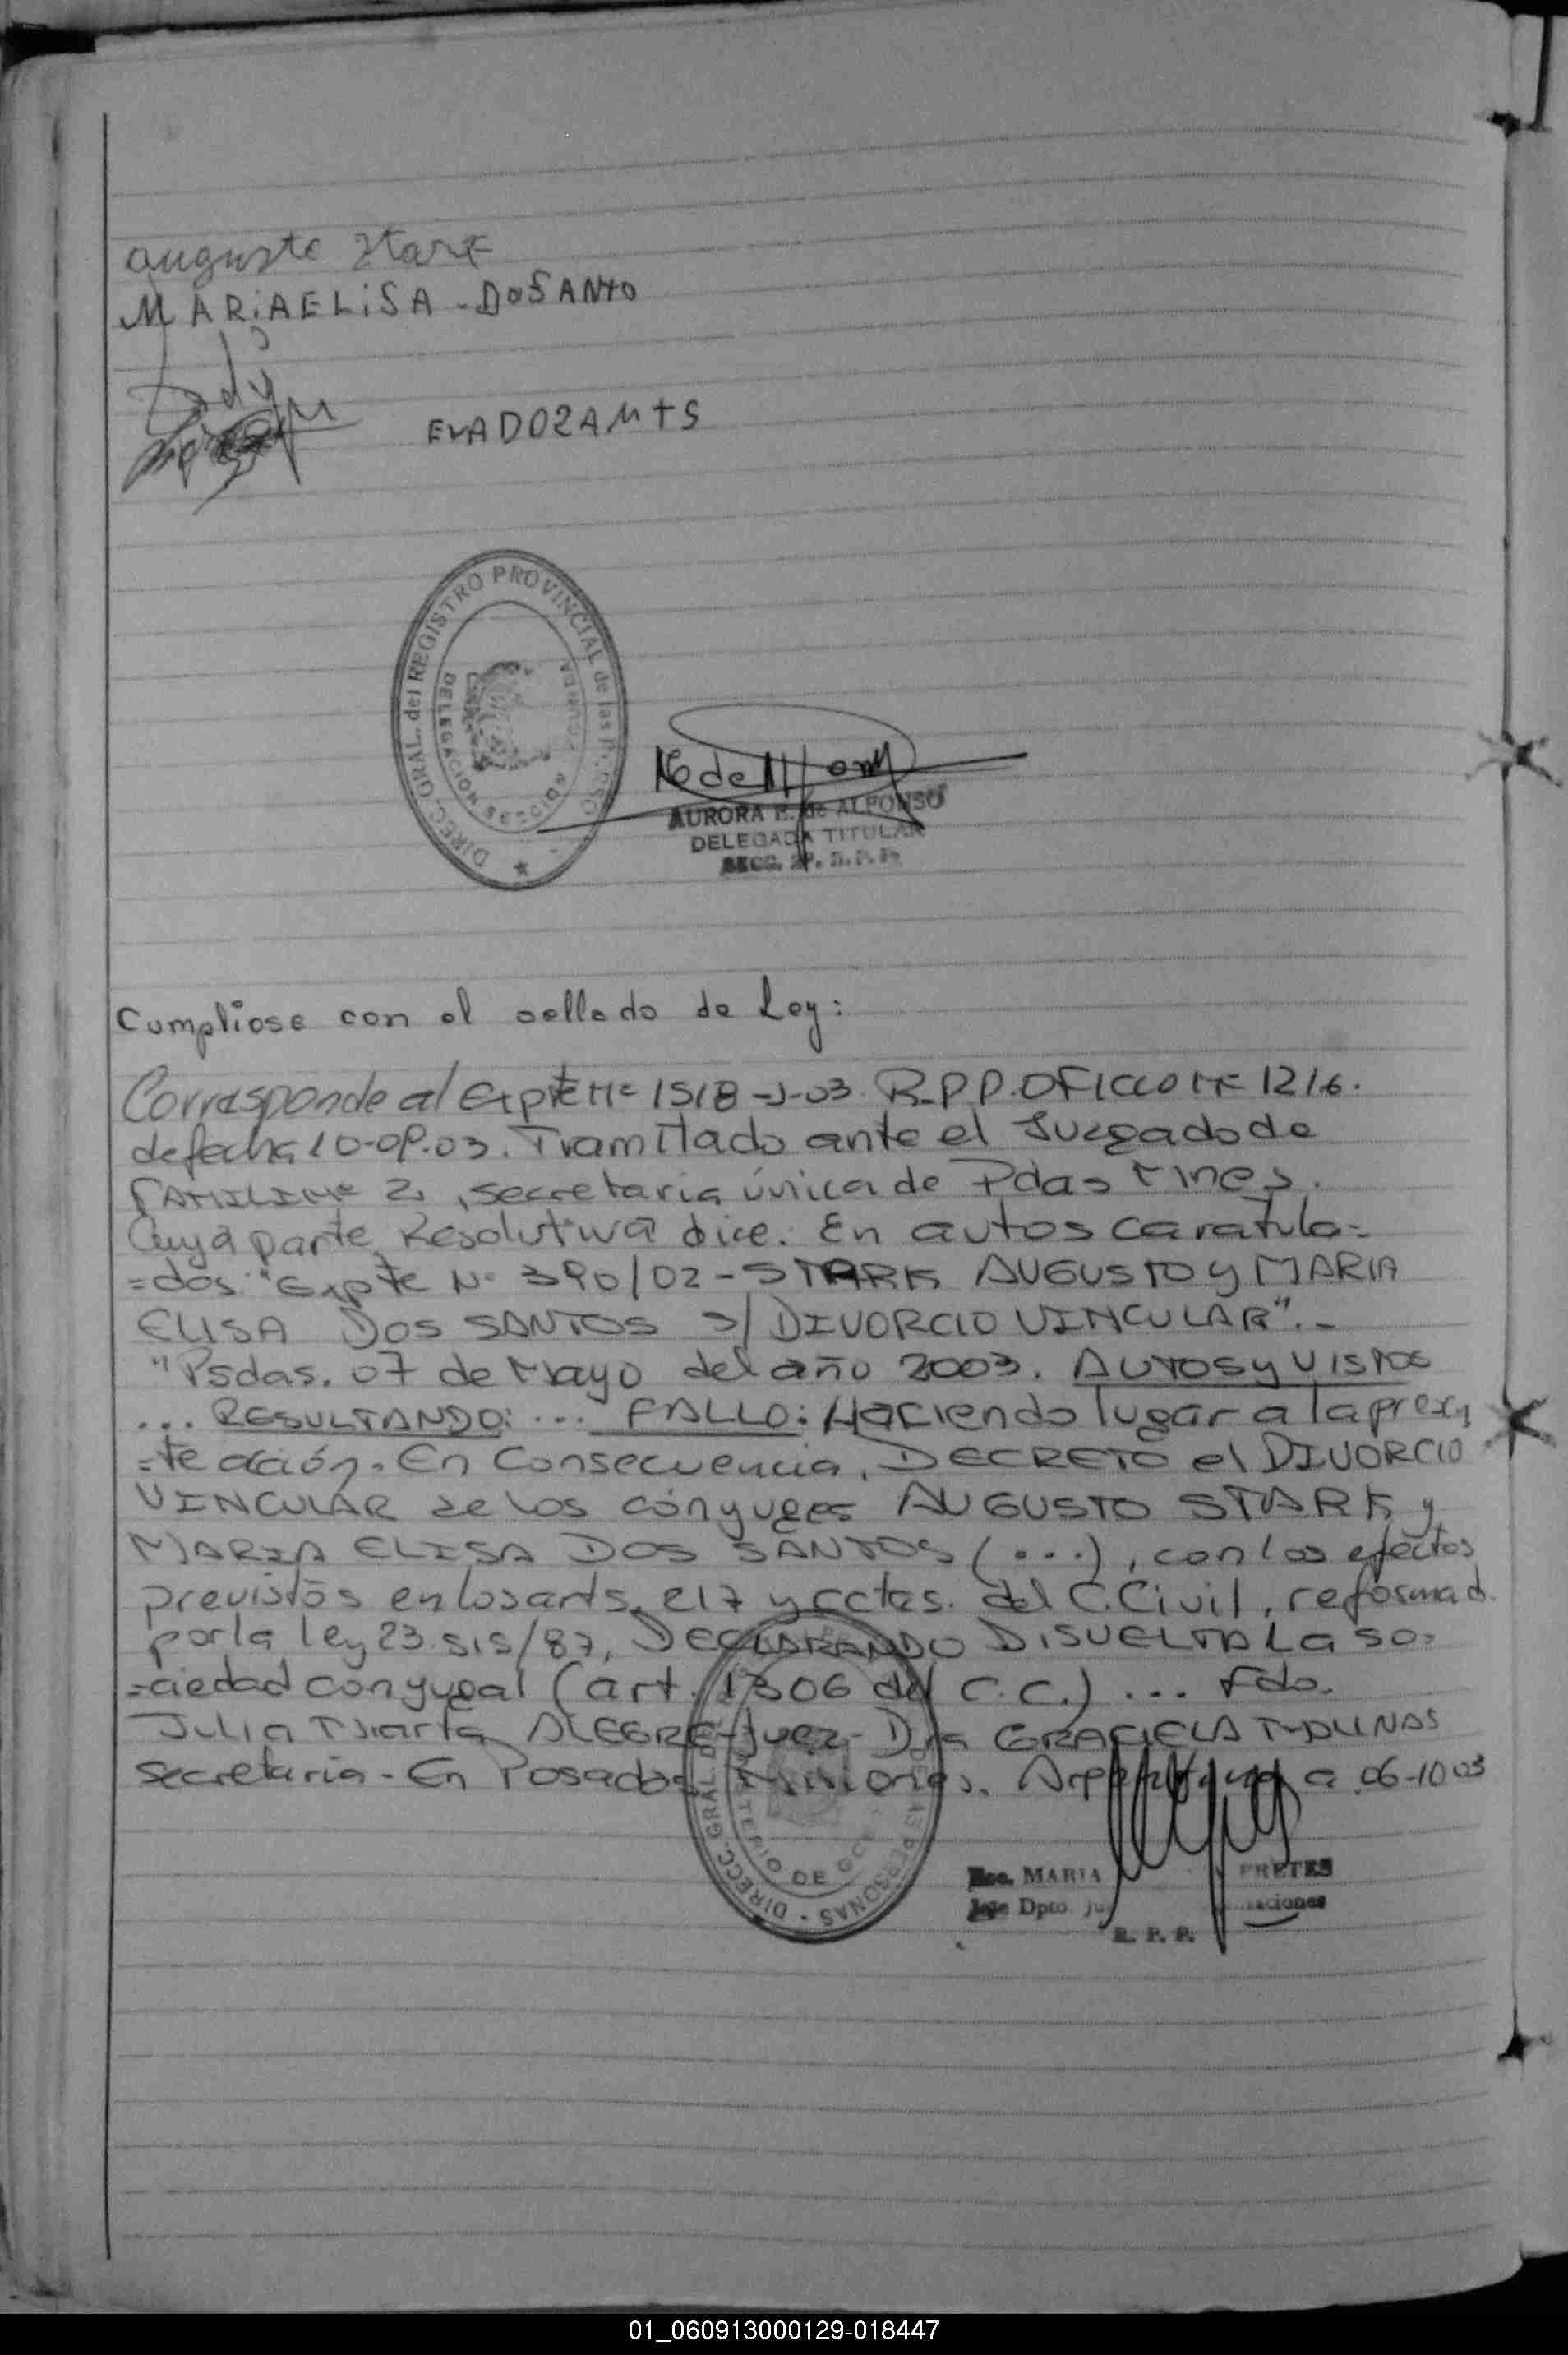 augusto Stark
MARiAELiSA - DOSANTO
EVADOZAMTS
DIREC. GRAL. del REGISTRO PROVINCIAL de las
DELEGACION SECCION
AURORA E. de ALFONSO
DELEGADA TITULAR
SECC. 2ª. R. P. P.
Cumpliose con el sellado de Ley:
Corresponde al Expte Nº 1518-J-03 R.P.P. OFICIO Nº 1216.
de fecha 10-09-03. Tramitado ante el Juzgado de
FAMILIA Nº 2, secretaria única de Pdas Mnes.
Cuya parte Resolutiva dice: En autos caratula=
=dos "Expte Nº 390/02 - STARK AUGUSTO y MARIA
ELISA DOS SANTOS S/ DIVORCIO VINCULAR".-
"Psdas. 07 de Mayo del año 2003. AUTOS y VISTOS
... RESULTANDO: ... FALLO: Haciendo lugar a la presen
=te acción. En Consecuencia, DECRETO el DIVORCIO
VINCULAR de los cónyuges AUGUSTO STARK y
MARIA ELISA DOS SANTOS (...), con los efectos
previstos en los arts. 217 y cctes. del C. Civil, reformad.
por la ley 23.515/87, DECLARANDO DISUELTA La so=
=ciedad conyugal (art. 1306 del C.C.) ... Fdo.
Julia Marta ALEGRE - Juez - Dra GRACIELA MOLINAS
Secretaria - En Posadas Misiones. Argentina a 06-10-03
DIRECC. GRAL. DEL
DE LAS PERSONAS
DE
Esc. MARIA PRETES
Jefe Dpto.
R. P. P.
01_060913000129-018447